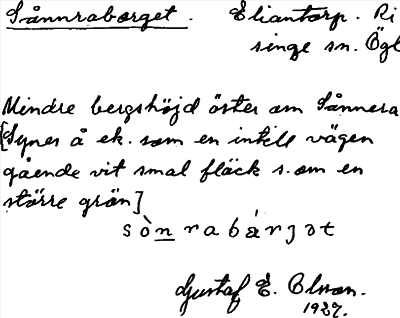 Sånnraberget. Eliantorp. Ri
singe sn. Ögl
Mindre bergshöjd öster om Sånnera
[Synes å ek. som en intill vägen
gående vit smal fläck s. om en
större grön]
sònrabárjət
Gustaf E. Olsson.
1927.